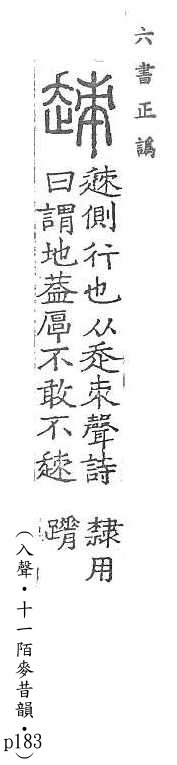 六書正譌
趚
趚側行也从走朿聲詩
曰謂地葢厚不敢不趚
隸用
蹐
(入聲・十一陌麥昔韻・p183)